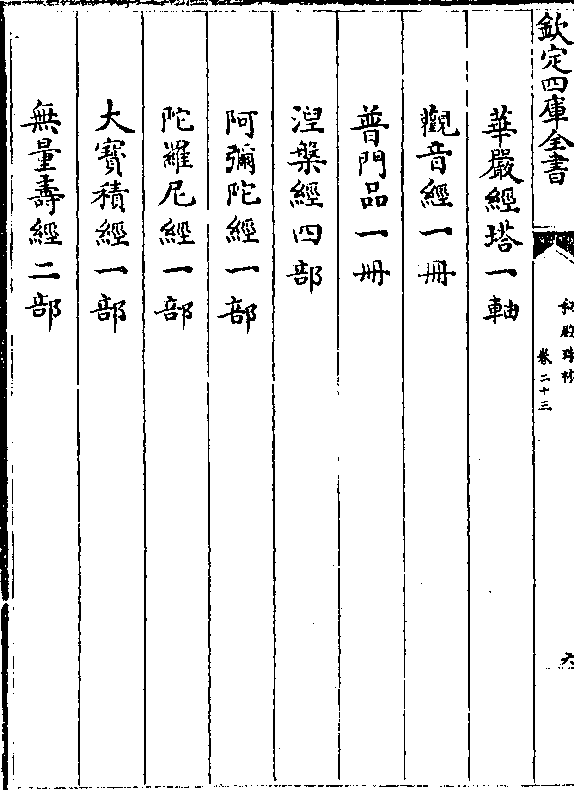 欽定四庫全書
秘殿珠林
卷二十三
六
華嚴經塔一軸
觀音經一冊
普門品一冊
涅槃經四部
阿彌陀經一部
陀羅尼經一部
大寶積經一部
無量壽經二部